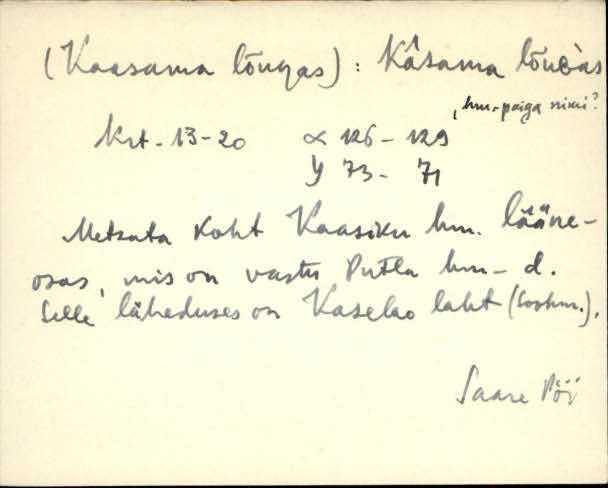 (Kaasama lõugas): Kâsama lõuGas
, hm-paiga nimi?
Krt-13-20 x 126-129
y 73-71
Metsata koht Kaasiku hm. lääne-
osas, mis on vastu Putla hm-d.
Selle läheduses on Kaselao laht (Soohm.).
Saare Pöi